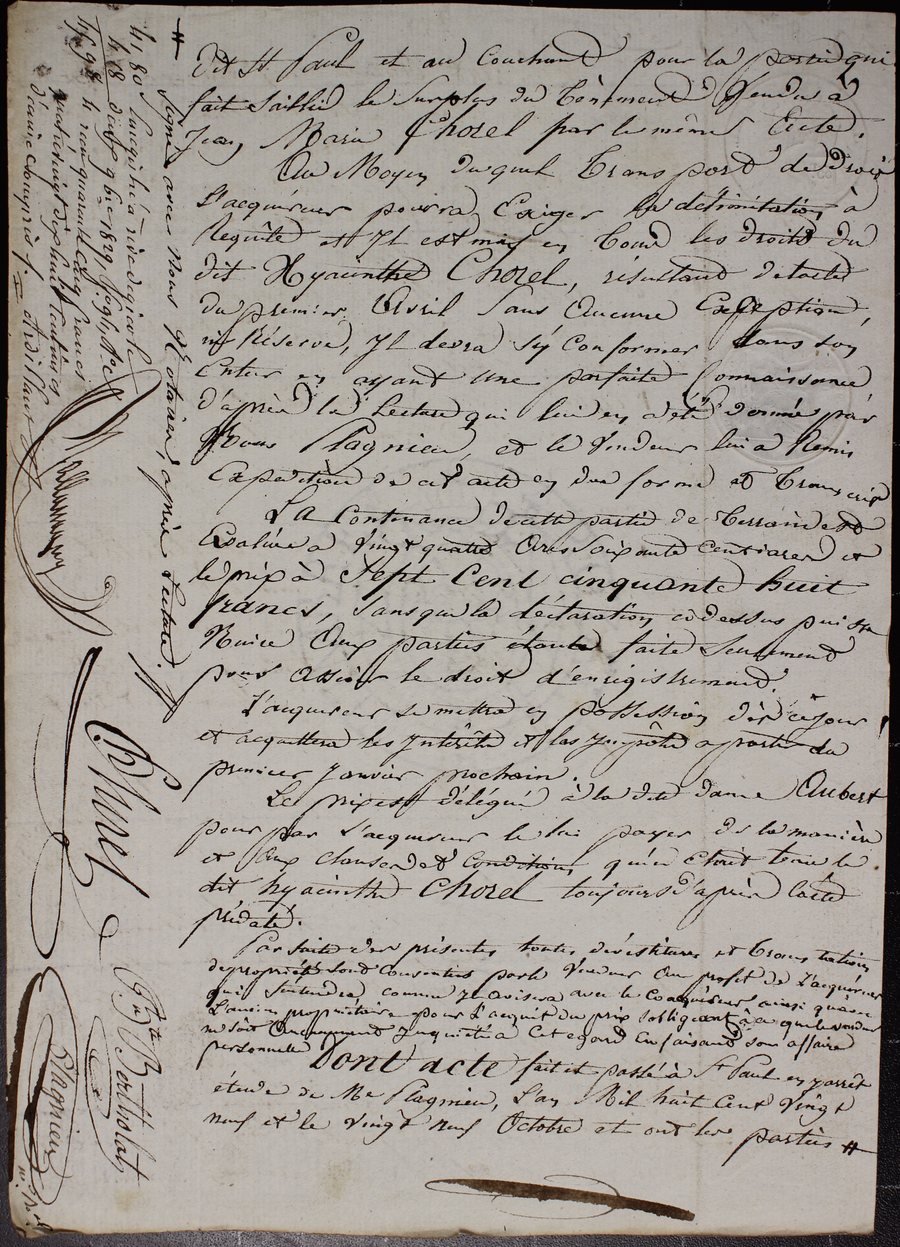 dit St Paul et au Couchant pour la partie qui
fait Saillie le Surplus du tènement Vendu à
Jean Marie Chorel par le même Acte.
Au Moyen duquel Transport de droit
l'acquéreur pourra Exiger la délimitation à
Requête et Il est mis en tous les droits du
dit Hyacinthe Chorel, résultant de l'acte
du premier Avril Sans Aucune Exception,
ni Réserve, Il devra s'y Conformer dans son
Entier en ayant Une parfaite Connaissance
d'après la Lecture qui lui en a été donnée par
Nous Plagnieu, et le Vendeur lui a Remis
Expédition de cet acte en due forme et Transcrit
La Contenance de cette partie de Terrain est
Evaluée à Vingt quatre Ares Soixante Centiares et
le prix à Sept Cent cinquante huit
francs, sans que la déclaration ci dessus puisse
Nuire Aux parties étant faite Seulement
pour Assoir le droit d'enregistrement.
L'acquéreur se mettra en possession dès ce jour
et acquittera les Intérêts et les Impôts à partir du
premier Janvier prochain.
Le prix est délégué à la dite dame Aubert
pour par l'acquéreur le lui payer de la manière
et Aux clauses et Conditions qu'en Etait tenu le
dit hyacinthe Chorel toujours d'après l'acte
prédaté.
Par suite des présentes toutes dévestitures et translation
de propriété sont Consenties par le Vendeur Au profit de l'acquéreur
qui S'entendra comme Il avisera avec le Coacquéreur ainsi qu'avec
l'ancien propriétaire pour l'acquit du prix s'obligeant à ce que le vendeur
ne soit Aucunement Inquiété à Cet égard En faisant son affaire
personnelle
Dont acte fait et passé à St Paul en Jarrêt
étude de Me Plagnieu, L'an Mil huit Cent Vingt
neuf et le Vingt neuf Octobre et ont les parties #
# signé avec Nous Notaire, après Lecture.
41,80 Enregistré à rive de gier le
4,18 dix gbre 1829, fo
45,98 Reçu quarante cinq francs
quatrevingt dix huit centimes
dixième compris.
Chorel
Bertholat
Plagnieu